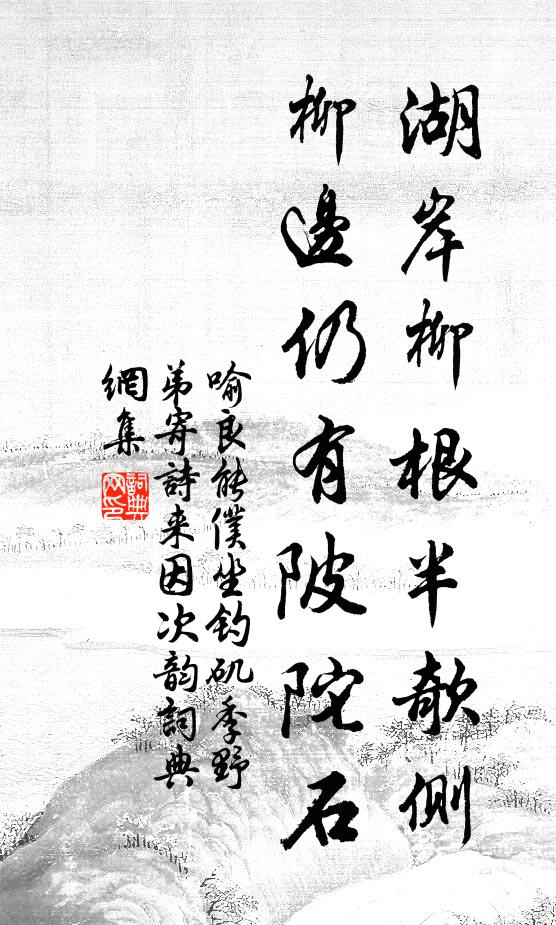 湖岸柳根半欹側
柳邊仍有陂陀石
喻良能僕坐釣矶季野
弟寄詩来因次韵詞典
網集
詞典
网印